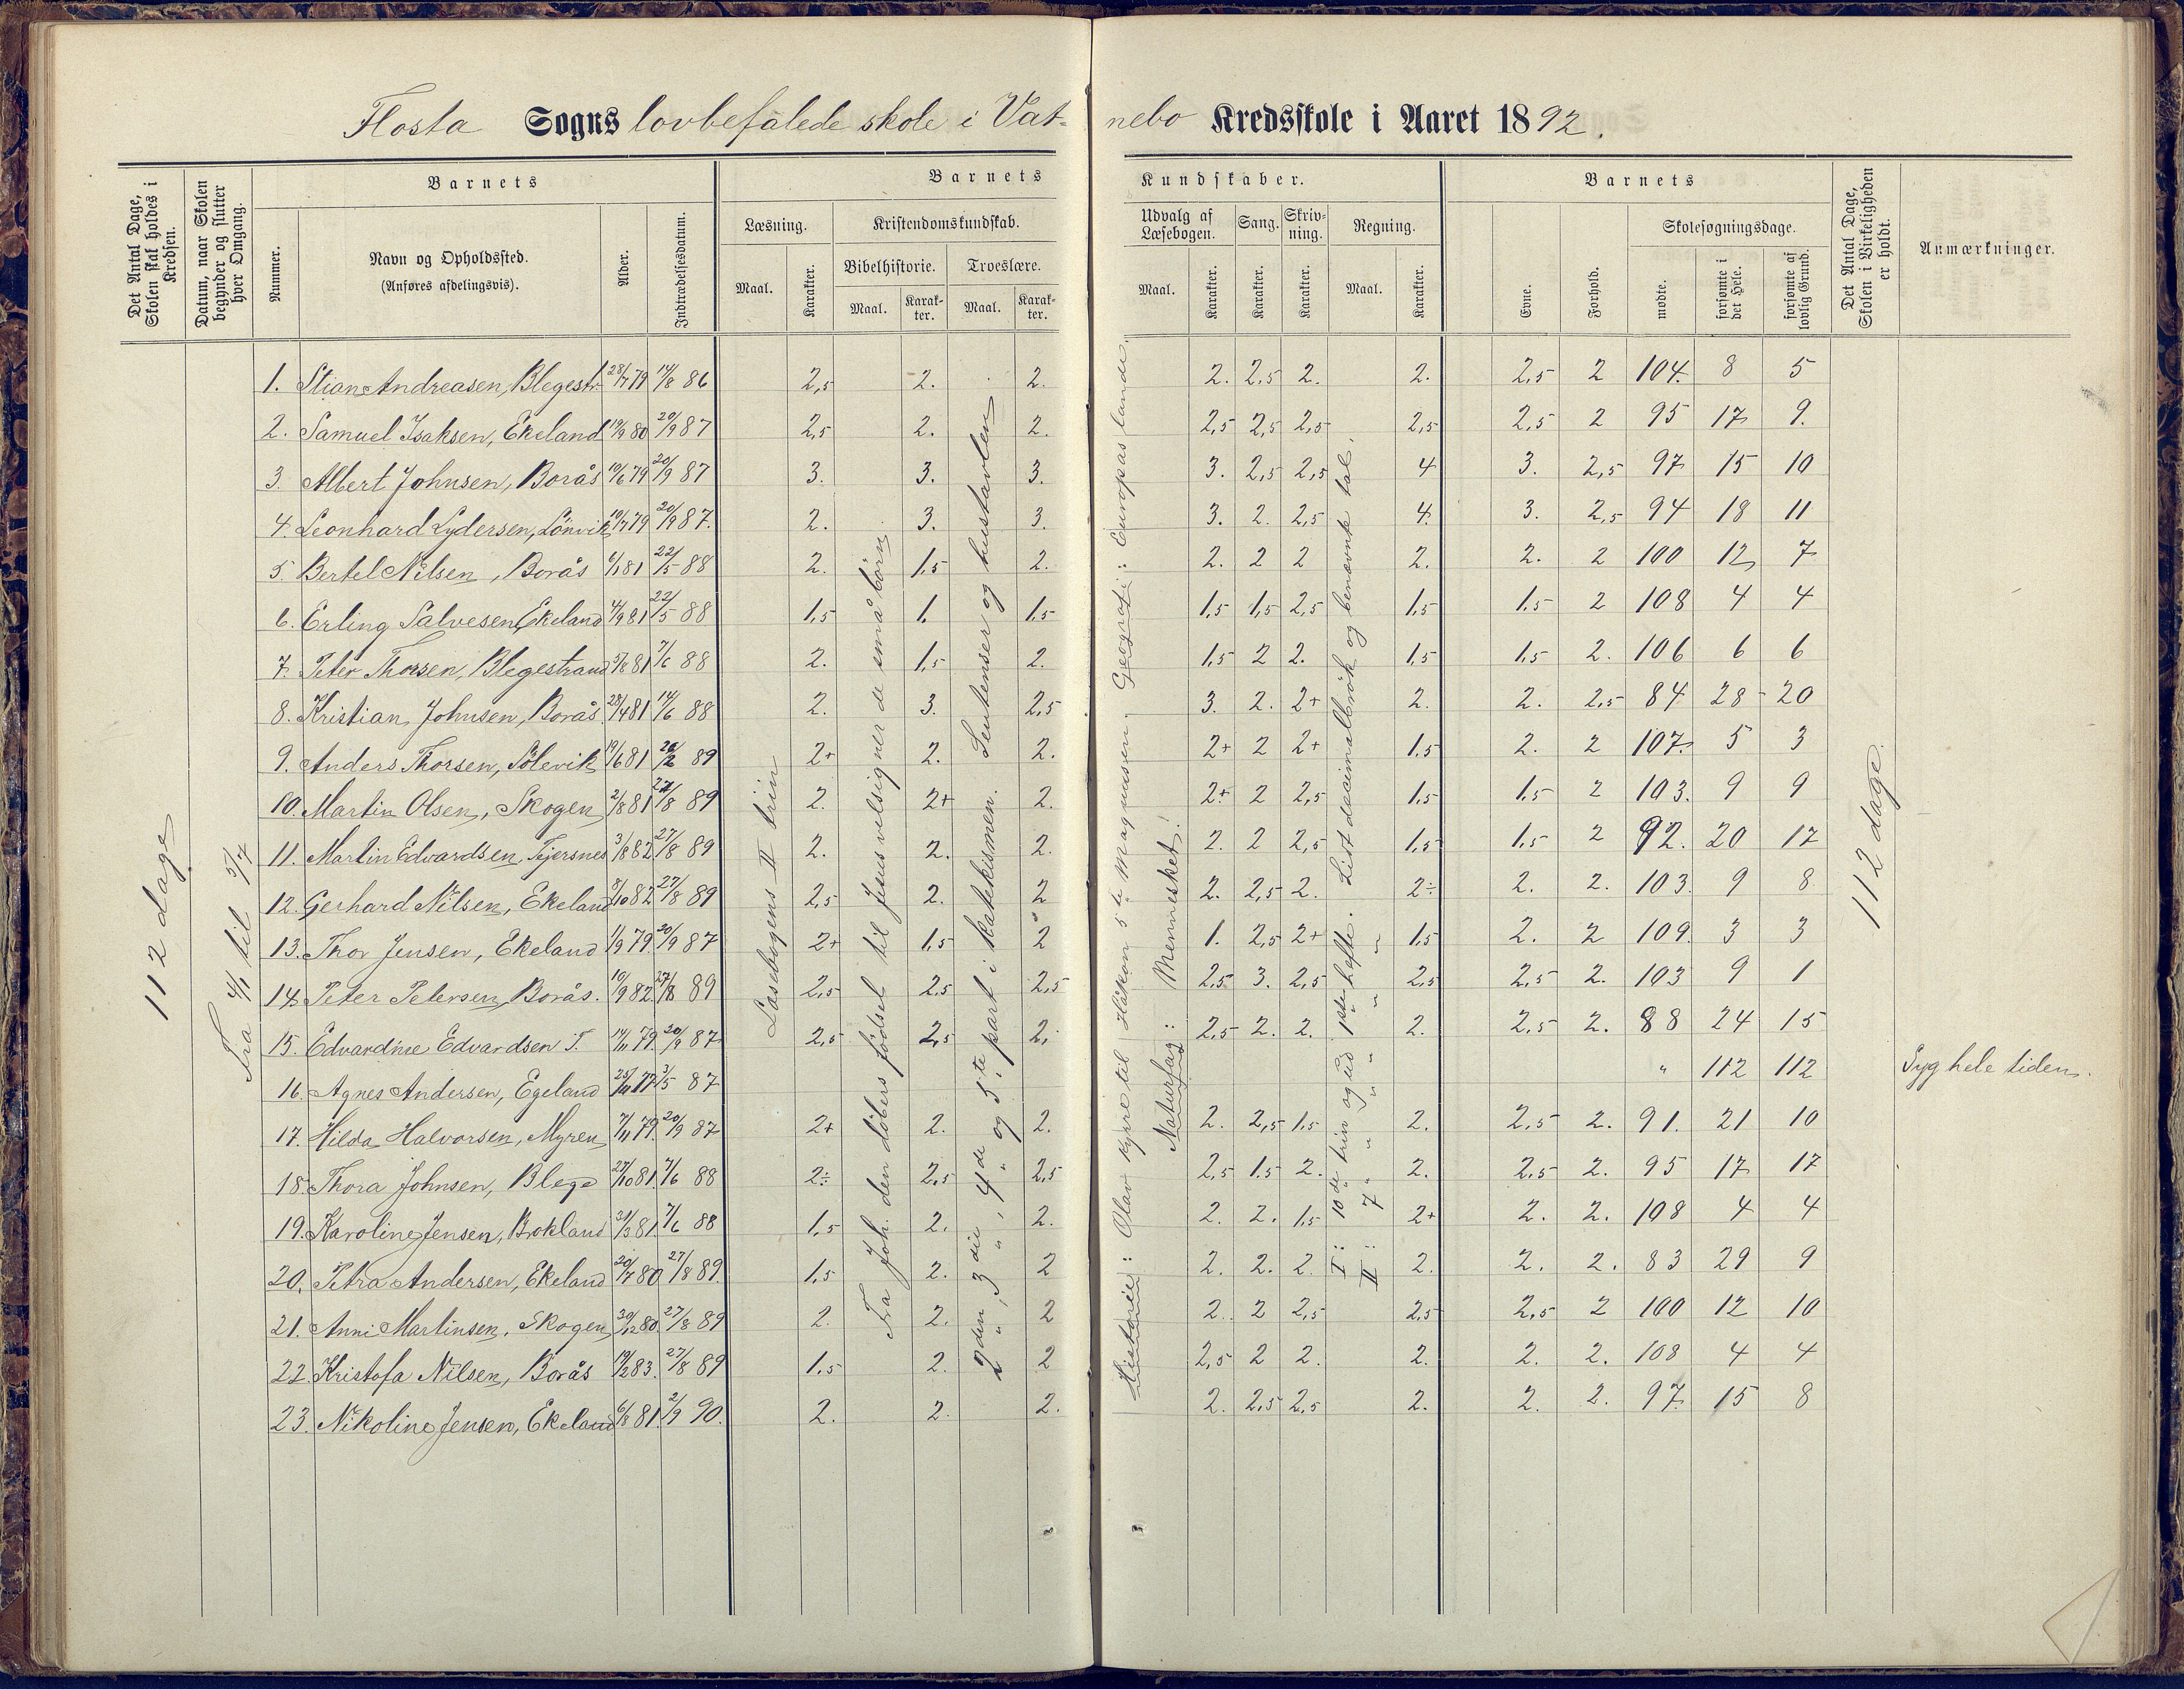 Flosta Sogns lovbefalede skole i Vatnebo Kredsskole i Aaret 1892.
Det Antal Dage, Skolen skal holdes i Kredsen.
Datum, naar Skolen begynder og slutter hver Omgang.
Barnets
Nummer.
Navn og Opholdssted.
(Anføres afdelingsvis).
Alder.
Indtrædelsesdatum.
Barnets Kundskaber.
Læsning.
Maal.
Karakter.
Kristendomskundskab.
Bibelhistorie.
Maal.
Karakter.
Troeslære.
Maal.
Karakter.
Udvalg af Læsebogen.
Maal.
Karakter.
Sang.
Karakter.
Skrivning.
Karakter.
Regning.
Maal.
Karakter.
Barnets
Evne.
Forhold.
Skolesøgningsdage.
mødte.
forsømte i det Hele.
forsømte af lovlig Grund.
Det Antal Dage, Skolen i Virkeligheden er holdt.
Anmærkninger.
112 dage
Fra 4/1 til 5/7
Læsebogens II trin
Fra Joh. den døbers fødsel til Jesus velsigner de små børn
2den, 3die, 4de og 5te part i katekismen. Sentenser og hustavlen
Historie: Olav Kyrre til Håkon 5te Magnussen. Geografi: Europas lande.
Naturfag: Mennesket!
I: 10de trin og ud 1ste hefte. Lidt decimalbrøk og benævnte tal.
II: 7 " " " " "
112 dage
1. Stian Andreasen, Blegestr. 28/7 79 14/8 86 2,5 2. 2. 2. 2.5 2. 2. 2.5 2 104. 8 5
2. Samuel Isaksen, Ekeland 19/9 80 20/9 87 2,5 2. 2. 2,5 2,5 2,5 2,5 2,5 2 95 17 9.
3. Albert Johnsen, Borås 10/6 79 20/9 87 3. 3. 3. 3. 2,5 2,5 4 3. 2,5 97 15 10
4. Leonhard Lydersen, Lønvik 10/7 79 20/9 87. 2. 3. 3. 3. 2. 2,5 4. 3. 2,5 94 18 11
5. Bertel Nilsen, Borås 6/1 81 22/5 88 2. 1,5 2. 2. 2 2 2. 2. 2 100 12 7
6. Erling Salvesen, Ekeland 4/9 81 22/5 88 1,5 1. 1,5 1,5 1,5 2,5 1,5 1,5 2 108 4 4
7. Peter Thorsen, Blegestrand 5/8 81 7/6 88 2. 1,5 2. 1,5 2 2. 1,5 1,5 2. 106 6 6
8. Kristian Johnsen, Borås 28/4 81 14/6 88 2. 3. 2,5 3. 2. 2+ 2. 2. 2,5 84 28 20
9. Anders Thorsen, Sølevik 19/6 81 89 2+ 2. 2. 2+ 2 2+ 1,5 2. 2 107. 5 3
10. Martin Olsen, Skogen 2/8 81 27/8 89 2. 2+ 2. 2+ 2 2,5 1,5 1,5 2 103. 9 9
11. Martin Edvardsen, Tjersnes 3/8 82 27/8 89 2. 2. 2. 2. 2 2,5 1,5 1,5 2 92. 20 17
12. Gerhard Nilsen, Ekeland 8/10 82 27/8 89 2,5 2. 2 2. 2,5 2. 2÷ 2. 2. 103. 9 8
13. Thor Jensen, Ekeland 1/9 79. 20/9 87 2+ 1,5 2 1. 2,5 2+ 1,5 2. 2 109. 3 3
14. Peter Petersen, Borås. 10/9 82 27/8 89 2,5 2,5 2,5 2,5 3. 2,5 2,5 2,5 2. 103 9 1
15. Edvardine Edvardsen T. 14/11 79. 20/9 87 2,5 2,5 2. 2,5 2. 2. 2. 2,5 2. 88 24 15
16. Agnes Andersen, Egeland 77 3/5 87 " 112 112 Syg hele tiden.
17. Hilda Halvorsen, Myren 7/11 79. 20/9 87 2+ 2. 2. 2. 2,5 1,5 2. 2,5 2. 91. 21 10
18. Thora Johnsen, Blege 27/10 81. 7/6 88 2÷ 2,5 2,5 2,5 1.5 2. 2. 2,5 2. 95 17 17
19. Karoline Jensen, Brokland 31/3 81. 7/6 88 1,5 2. 2. 2. 2. 1,5 2+ 2. 2. 108 4 4
20. Petra Andersen, Ekeland 20/7 80. 27/8 89. 1,5 2. 2 2. 2. 2. 2. 2. 2. 83 29 9
21. Anni Martinsen, Skogen 30/12 80. 27/8 89 2. 2. 2 2. 2 2,5 2,5 2,5 2 100 12 10
22. Kristofa Nilsen, Borås 19/2 83. 27/8 89 1,5 2. 2 2,5 2 2. 2. 2. 2. 108 4 4
23. Nikoline Jensen, Ekeland 6/8 81. 2/9 90. 2. 2. 2. 2. 2,5 2,5 2. 2. 2. 97. 15 8